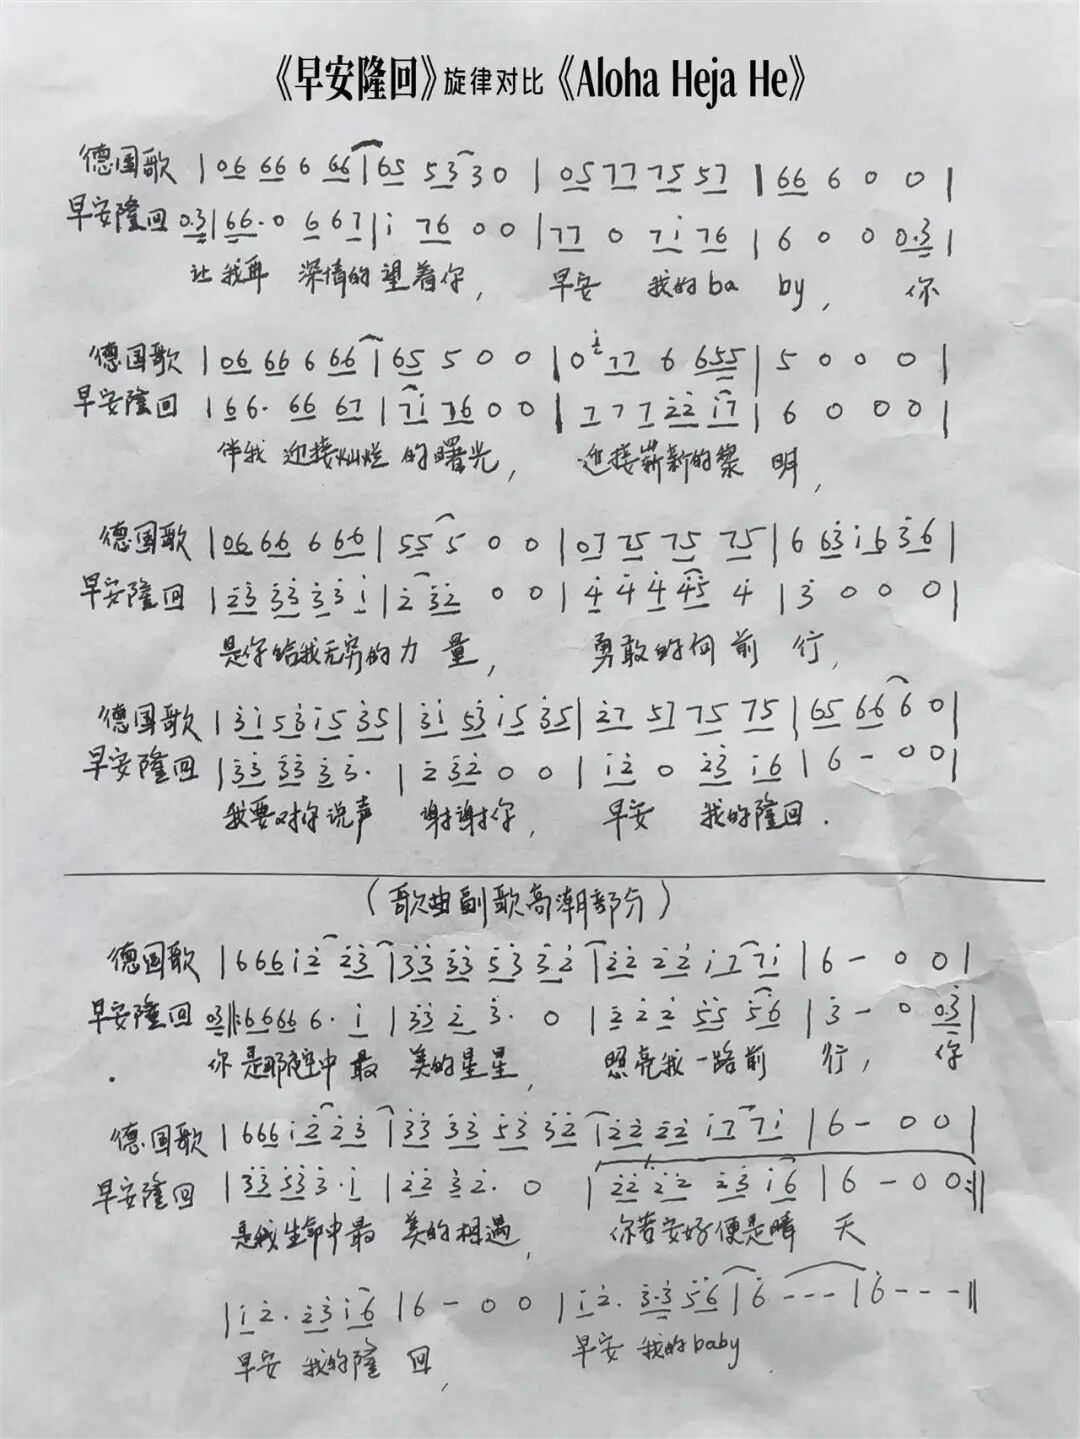 《早安隆回》旋律对比《Aloha Heja He》
德国歌 | 06 66 6 66 | 65 5 3 3 0 | 05 77 75 57 | 66 6 0 0 |
早安隆回 0.3 | 66. 0 6 67 | i 76 0 0 | 77 0 7i 76 | 6 0 0 0.3 |
让我再 深情的望着你, 早安 我的ba by, 你
德国歌 | 06 66 6 66 | 65 5 0 0 | 0 77 6 655 | 5 0 0 0 |
早安隆回 | 66. 66 67 | 7i 76 0 0 | 7 7 7 22 i7 | 6 0 0 0 |
伴我 迎接灿烂 的曙光, 迎接崭新的黎 明,
德国歌 | 06 66 6 66 | 55 5 0 0 | 07 75 75 75 | 6 63 i6 36 |
早安隆回 | 23 33 33 i | 2 32 0 0 | 4 4 4 45 4 | 3 0 0 0 |
是你给我无穷的力 量, 勇敢的向 前 行,
德国歌 | 3i 53 i5 35 | 3i 53 i5 35 | 27 57 75 75 | 65 66 6 0 |
早安隆回 | 33 33 3 3. | 2 32 0 0 | i2 0 23 i6 | 6 - 0 0 |
我要对你说声 谢谢你, 早安 我的隆回.
(歌曲副歌高潮部分)
德国歌 | 666 i2 23 | 33 33 53 32 | 22 22 i7 7i | 6 - 0 0 |
早安隆回 03 ‖: 6666 6. i | 33 2 3. 0 | 2 2 2 55 56 | 3 - 0 0.3 |
你 是那夜空中 最 美的星星, 照亮我一路前 行, 你
德国歌 | 666 i2 23 | 33 33 53 32 | 22 22 i7 7i | 6 - 0 0 |
早安隆回 | 33 53 3. i | 22 32. 0 | 22 22 23 i6 | 6 - 0 0 :‖
是我生命中最 美的相遇, 你若安好便是晴 天
| i 2. 23 i6 | 6 - 0 0 | i 2. 3.3 56 | 6 - - - | 6 - - - ‖
早安 我的隆 回, 早安 我的baby